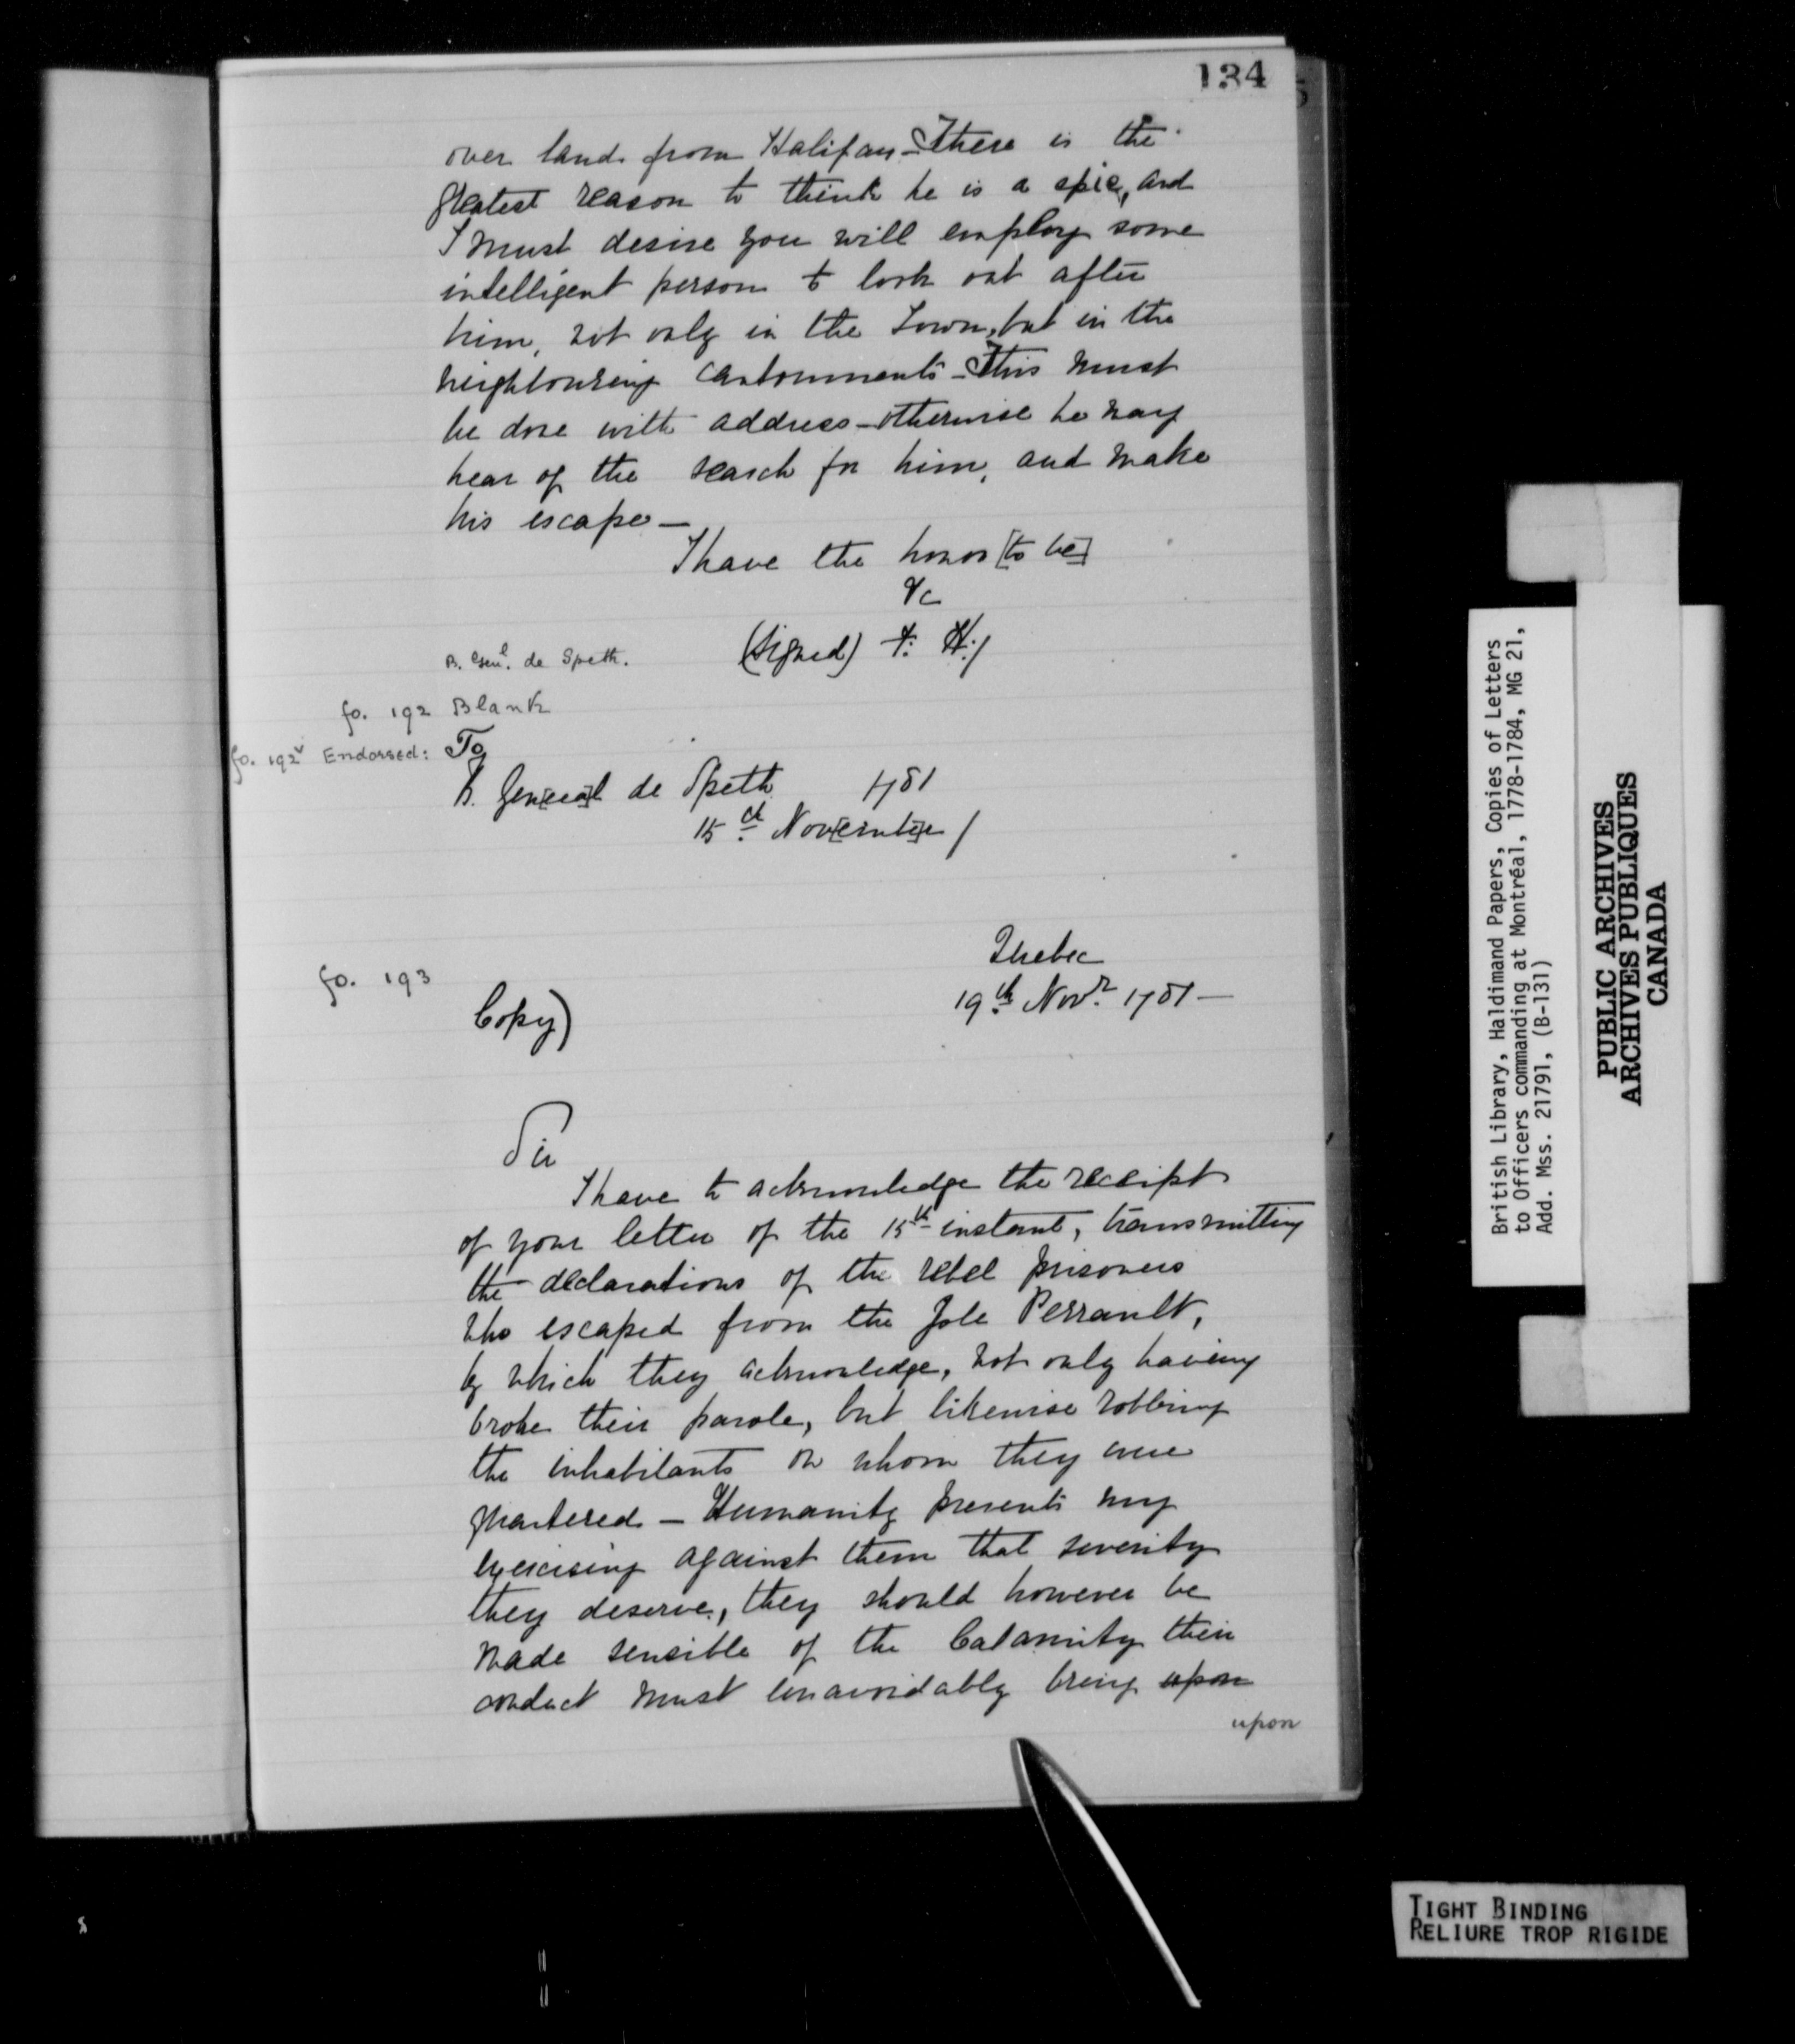 134
over land from Halifax - There is the
greatest reason to think he is a spie, and
I must desire you will employ some
intelligent person to look out after
him, not only in the Town, but in the
neighbouring cantonments - This must
be done with address - otherwise he may
hear of the search for him, and make
his escape -
I have the honor [to be]
&c
(signed) F: H:/
B. Genl. de Speth.
fo. 192 Blank
fo. 192v Endorsed: To
B. Gen[era]l de Speth 1781
15th Nov[embe]r /
fo. 193
Quebec
19th Novr. 1781 -
Copy)
Sir
I have to acknowledge the receipt
of your letter of the 15th instant, transmitting
the declarations of the rebel prisoners
who escaped from the Isle Perrault,
by which they acknowledge, not only having
broke their parole, but likewise robbing
the inhabitants on whom they were
quartered - Humanity prevents my
exercising against them that severity
they deserve, they should however be
made sensible of the Calamity their
conduct must unavoidably bring upon
upon
British Library, Haldimand Papers, Copies of Letters
to Officers commanding at Montréal, 1778-1784, MG 21,
Add. Mss. 21791, (B-131)
PUBLIC ARCHIVES
ARCHIVES PUBLIQUES
CANADA
TIGHT BINDING
RELIURE TROP RIGIDE